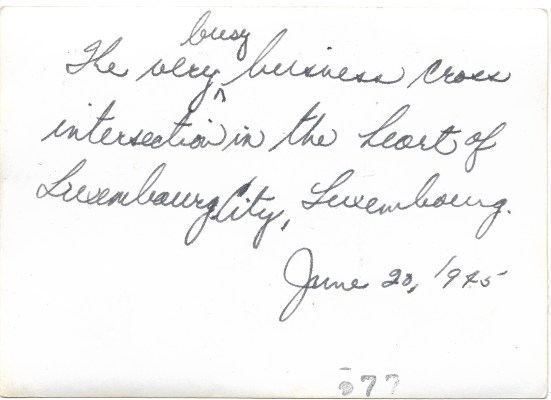 The very busy business cross
intersection in the heart of
Luxembourg City, Luxembourg.
June 20, 1945
577